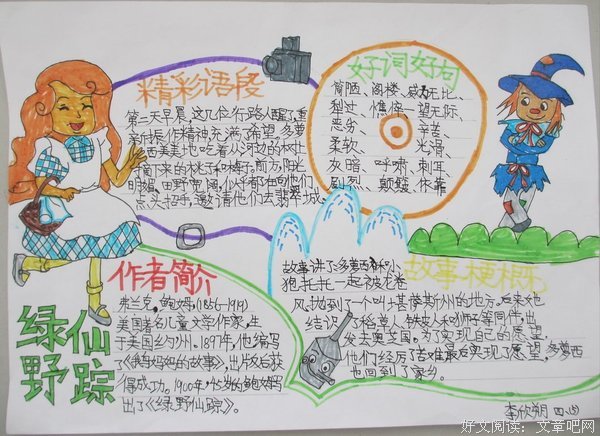 精彩语段
第二天早晨,这几位行路人醒了重
新振作精神,充满了希望,多萝
西美美地吃着从河边的树上
摘下来的桃子和梅子,前方,阳光
明媚,田野宽阔,似乎都在向他们
点头招手,邀请他们去翡翠城。
好词好句
简陋、阁楼、威力无比、
刮过、憔悴、一望无际、
恶劣、辛苦、
柔软、光滑、
灰暗、呼啸、刺耳、
剧烈、颠簸、依靠
作者简介
弗兰克,鲍姆,(1856-1919)
美国著名儿童文学作家,生
于美国纽约州。1897年,他编写
了《鹅妈妈的故事》,出版后获
得成功。1900年,45岁的鲍姆
出了《绿野仙踪》。
绿仙
野踪
故事梗概
故事讲了多萝西和小
狗托托一起被龙卷
风,抛到了一个叫堪萨斯州的地方,后来她
结识了稻草人、铁皮人和狮子等同伴,出
发去奥芝国。为了实现自己的愿望,
他们经历了苦难最后实现了愿望,多萝西
也回到了家乡。
李欣朔 四(5)
好文阅读:文章吧网